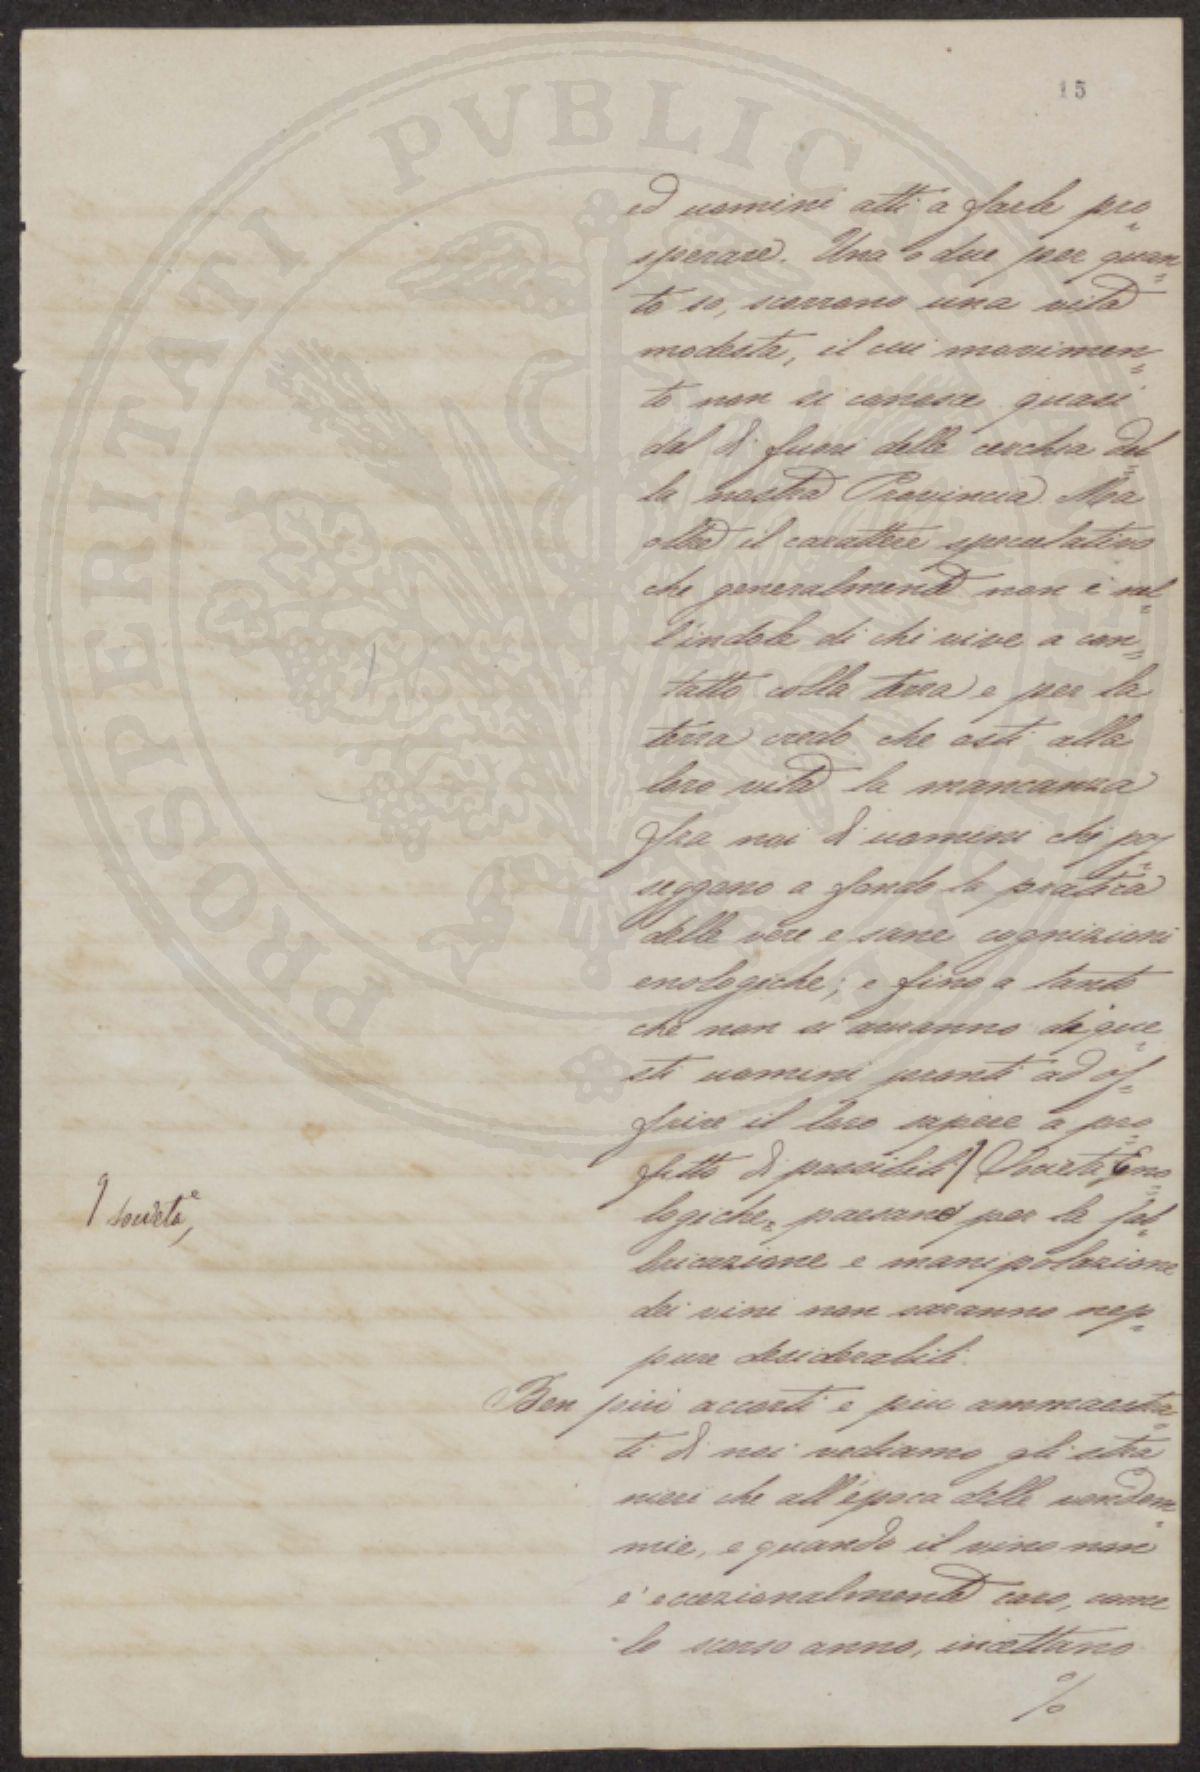 15
ed uomini atti a farle pro=
sperare. Una o due per quan=
to so, scorrono una vita
modesta, il cui movimen=
to non si conosce quasi
dal di fuori delle cerchia del=
la nostra Provincia. Ma
oltre il carattere speculativo
che generalmente non è nel=
l'indole di chi vive a con=
tatto colla terra e per la
terra credo che osti alla
loro vita la mancanza
fra noi di uomini che pos=
seggano a fondo la pratica
delle vere e sane cognizioni
enologiche; e fino a tanto
che non si avranno di que=
sti uomini pronti ad of=
frire il loro sapere a pro=
fitto di possibili Società Eno=
logiche, paesane per la fab=
bricazione e manipolazione
dei vini non saranno nep=
pure desiderabili.
Società,
Ben più accorti e più ammaestra=
ti di noi vediamo gli stra=
nieri che all'epoca delle vendem=
mie, e quando il vino non
è eccezionalmente caro, come
lo scorso anno, incettano
%
PROSPERITATI PVBLICAE